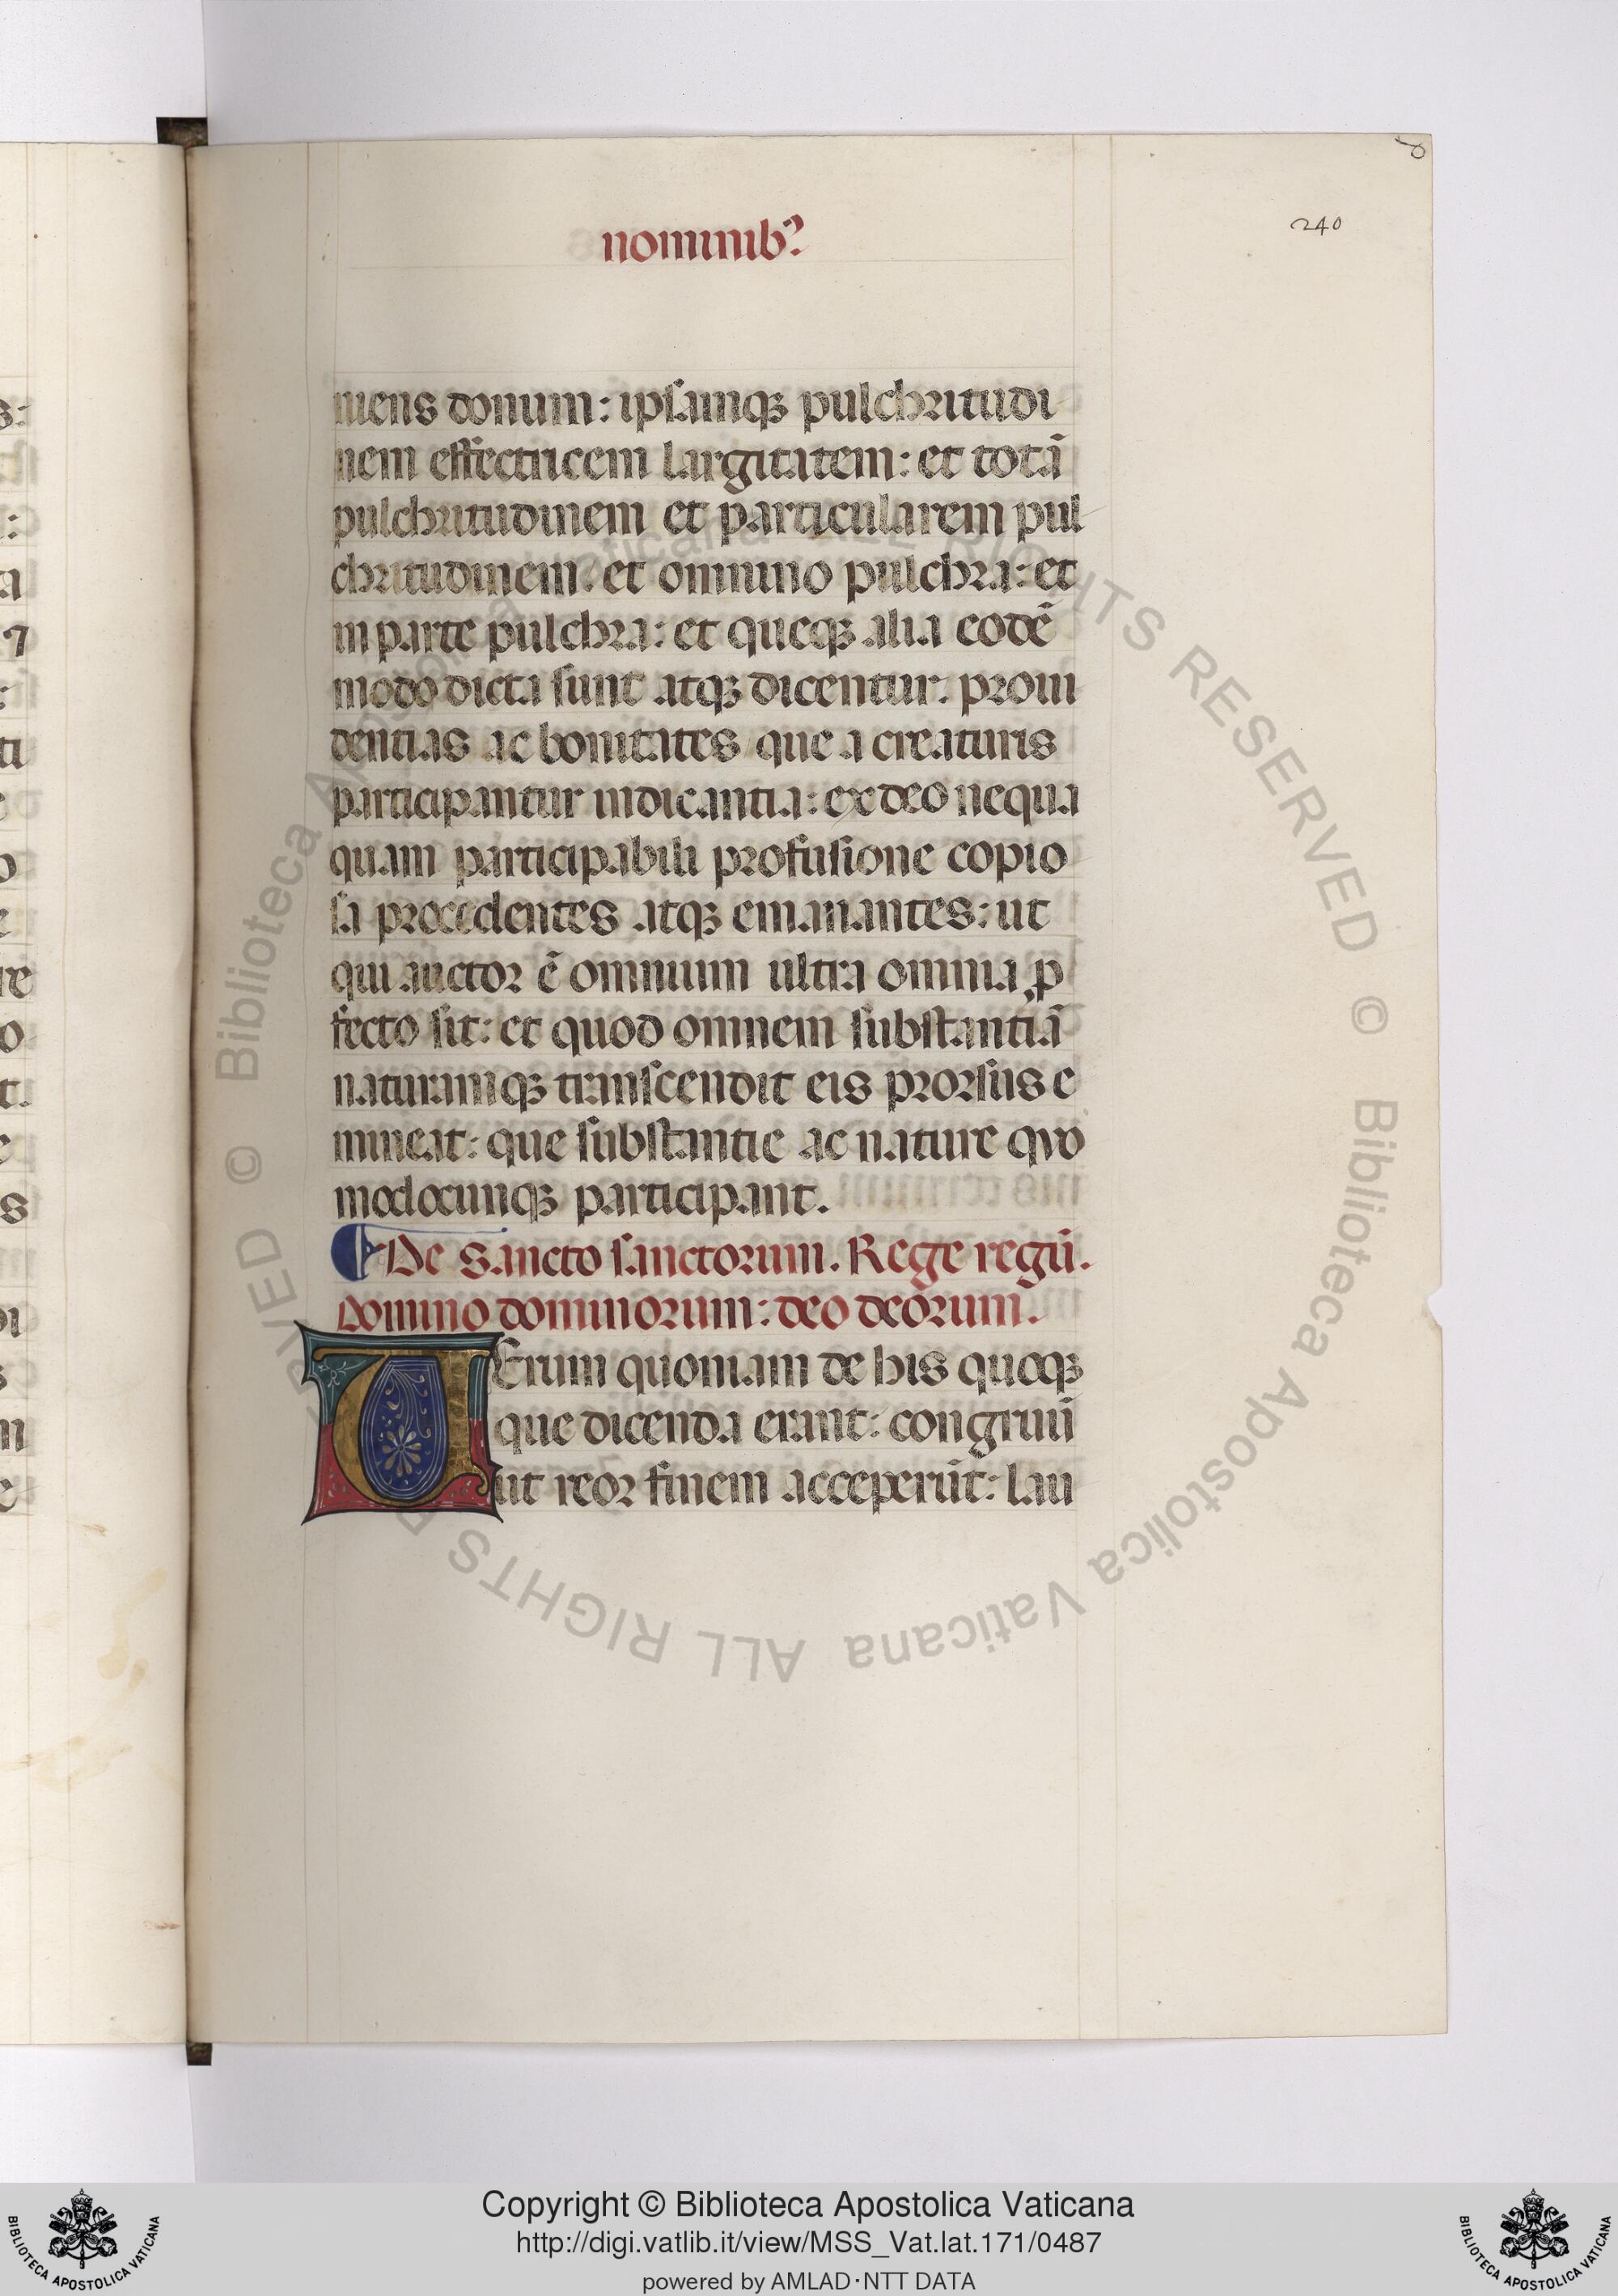 240
nominib⁹
niens donum: ipsamqꝫ pulchritudi
nem effectricem largitatem: et totā
pulchritudinem et particularem pul
chritudinem. et omnino pulchra: et
in parte pulchra: et queqꝫ alia eodē
modo dicta sunt atqꝫ dicentur. proui
dentias ac bonitates que a creaturis
participantur indicantia: ex deo nequa
quam participabili profusione copio
sa procedentes atqꝫ emanantes: ut
qui auctor ē omnium ultra omnia ꝓ
fecto sit: et quod omnem substantiā
naturamqꝫ transcendit eis prorsus e
mineat: que substantie ac nature quo
modocunqꝫ participant.
De Sancto sanctorum. Rege regū.
Domino dominorum: deo deorum.
VErum quoniam de his quoqꝫ
que dicenda erant: congruū
ut reor finem acceperūt: lau
Copyright © Biblioteca Apostolica Vaticana
http://digi.vatlib.it/view/MSS_Vat.lat.171/0487
powered by AMLAD·NTT DATA
BIBLIOTECA APOSTOLICA VATICANA
BIBLIOTECA APOSTOLICA VATICANA
© Biblioteca Apostolica Vaticana ALL RIGHTS RESERVED © Biblioteca Apostolica Vaticana ALL RIGHTS RESERVED